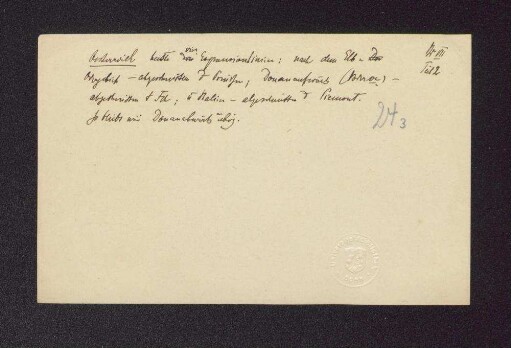 Oesterreich hatte vier Expansionslinien: nach dem Elb- u. Oder
gebiet – abgeschnitten d. Preußen; Donauaufwärts –
abgeschnitten d. ; Italien – abgeschnitten d. Piemont.
So bleibt nur Donauabwärts übrig.
III
Teil 2
24 3